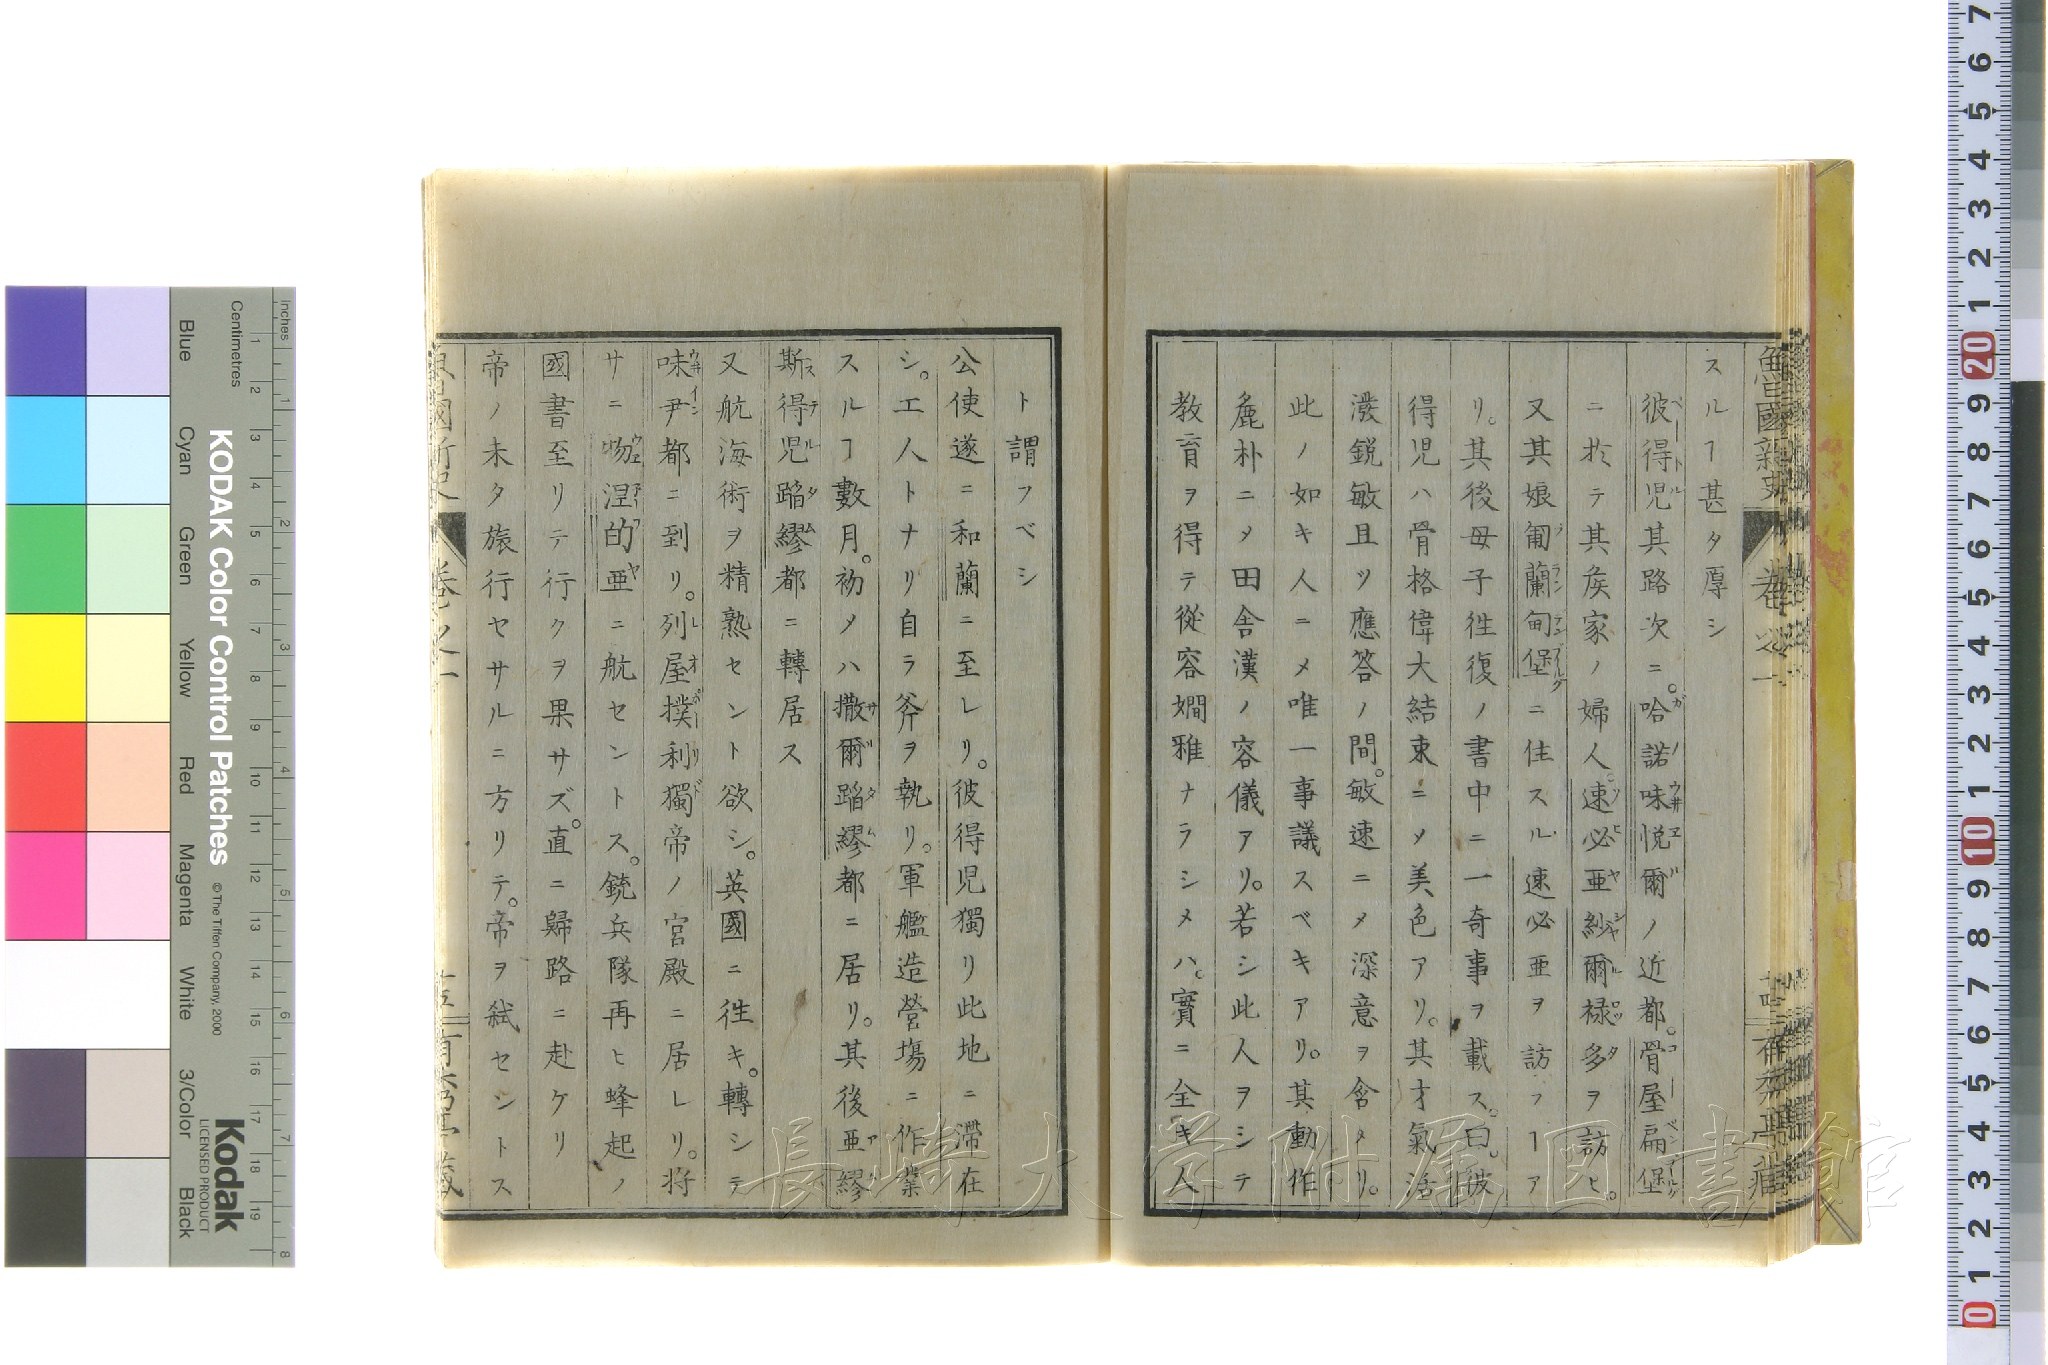 魯西亞國新史 卷之一
スルヿ甚タ厚シ
彼得児其路次ニ。哈諾味悦爾ノ近都。骨屋扁堡
ニ於テ其矦家ノ婦人。速必亜紗爾禄多ヲ訪ヒ。
又其娘匍蘭甸堡ニ住スル速必亜ヲ訪フヿア
リ。其後母子徃復ノ書中ニ一奇事ヲ載ス。曰。彼
得児ハ骨格偉大結束ニメ美色アリ。其才氣活
潑鋭敏且ツ應答ノ間。敏速ニメ深意ヲ含タリ。
此ノ如キ人ニメ唯一事議スベキアリ。其動作
麁朴ニメ田舎漢ノ容儀アリ。若シ此人ヲシテ
教育ヲ得テ從容嫺雅ナラシメハ。實ニ全キ人
ト謂フベシ
公使遂ニ和蘭ニ至レリ。彼得児獨リ此地ニ滞在
シ。工人トナリ自ラ斧ヲ執リ。軍艦造營塲ニ作業
スルヿ數月。初メハ撒爾蹈繆都ニ居リ。其後亜繆
斯得児蹈繆都ニ轉居ス
又航海術ヲ精熟セント欲シ。英國ニ徃キ。轉シテ
味尹都ニ到リ。列屋撲利獨帝ノ宮殿ニ居レリ。将
サニ物涅的亜ニ航セントス。銃兵隊再ヒ蜂起ノ
國書至リテ行クヲ果サズ。直ニ歸路ニ赴ケリ
帝ノ未タ旅行セサルニ方リテ。帝ヲ弑セントス
長崎大学附属図書館
KODAK Color Control Patches
© The Tiffen Company, 2000
Kodak
LICENSED PRODUCT
Centimetres
Inches
Blue
Cyan
Green
Yellow
Red
Magenta
White
3/Color
Black